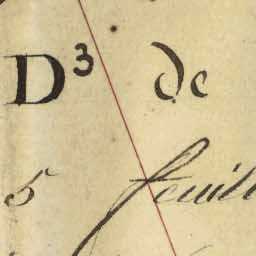 D³ de
5 feuill